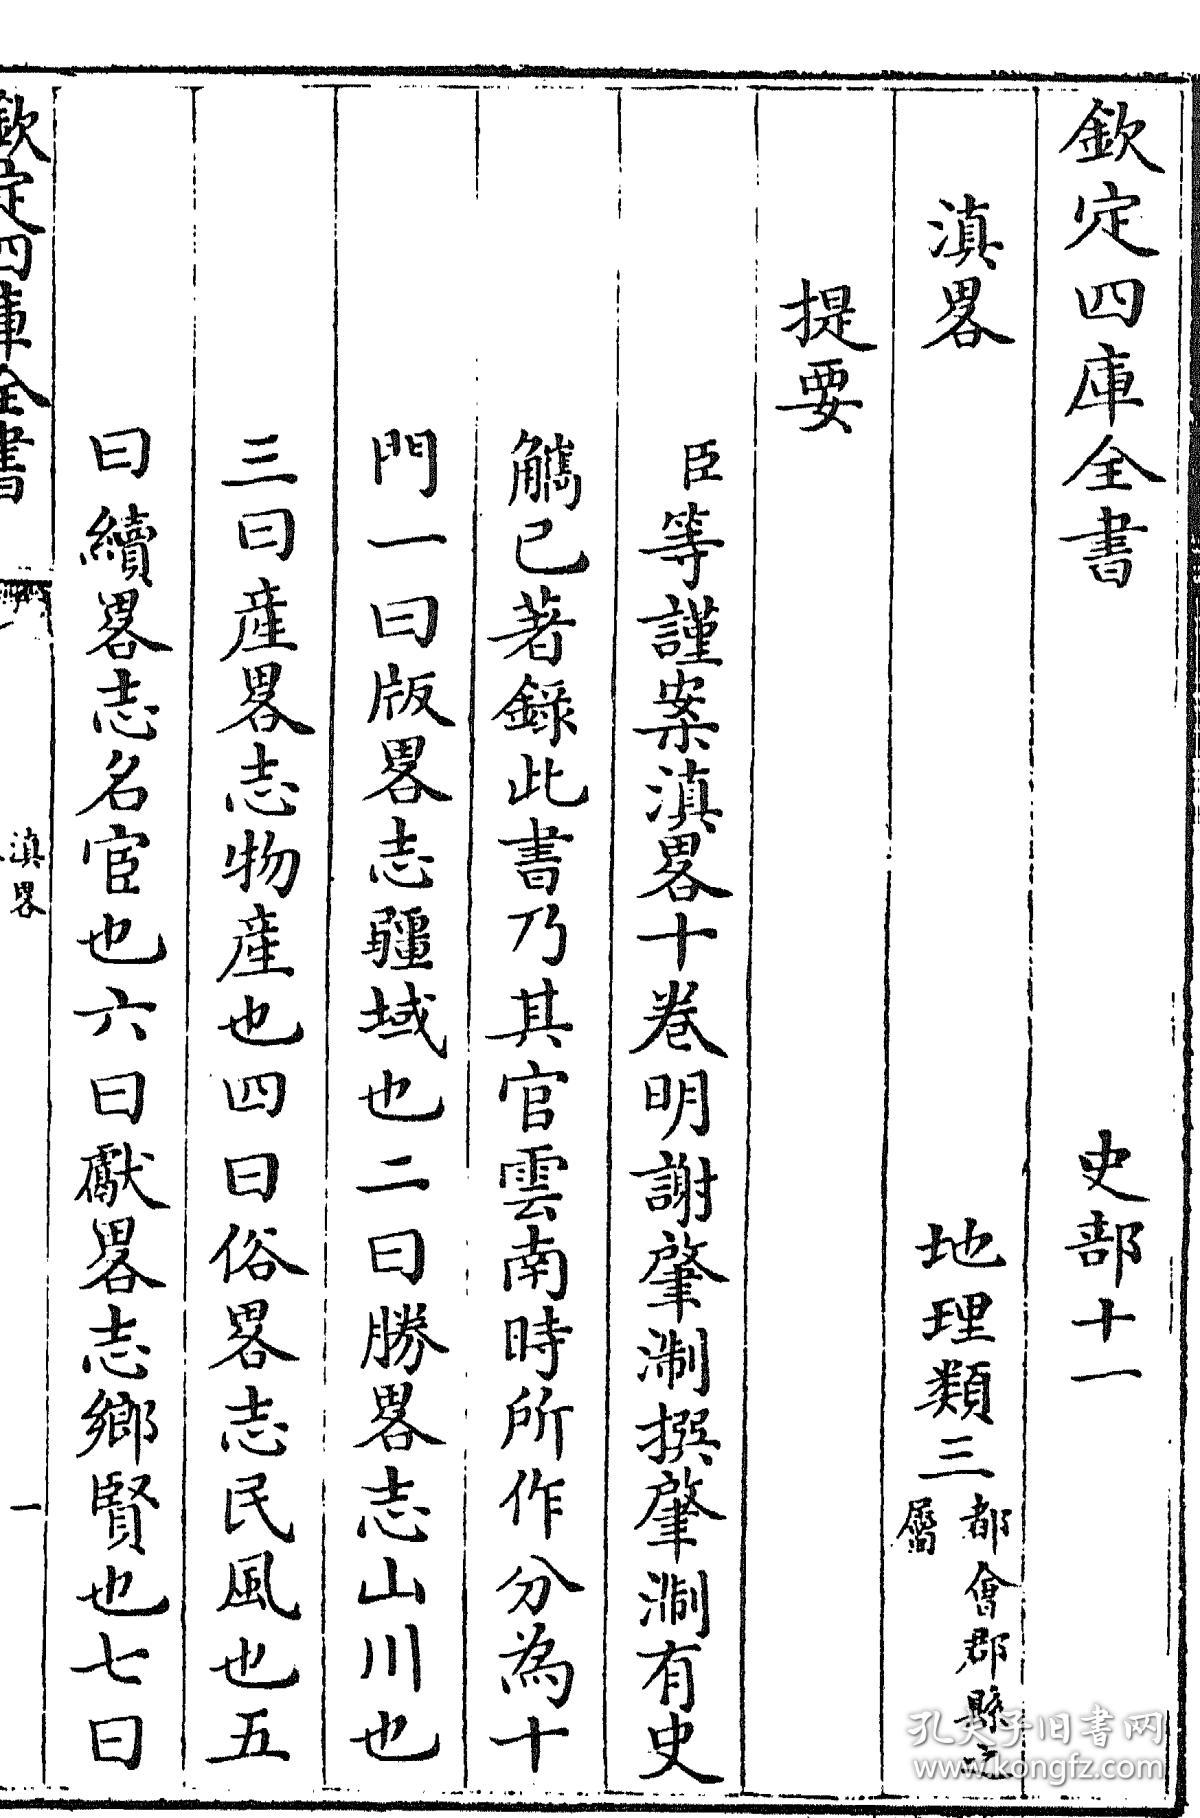 欽定四庫全書 史部十一
滇畧 地理類三 都會郡縣之屬
提要
臣等謹案滇畧十卷明謝肇淛撰肇淛有史
觽已著錄此書乃其官雲南時所作分為十
門一曰版畧志疆域也二曰勝畧志山川也
三曰產畧志物產也四曰俗畧志民風也五
曰續畧志名宦也六曰獻畧志鄉賢也七曰
欽定四庫全書
滇畧
一
孔夫子旧書网
www.kongfz.com